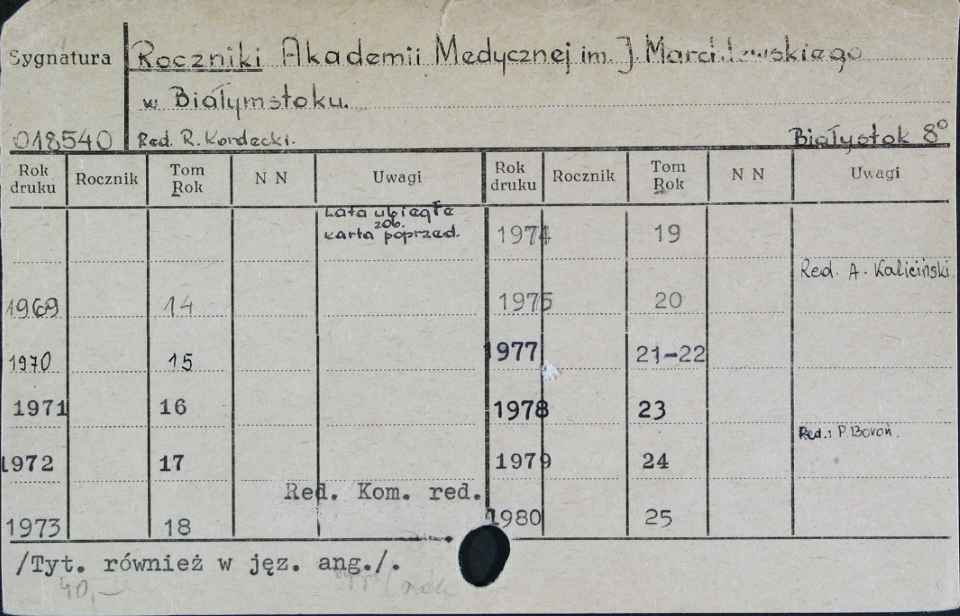 Sygnatura
Roczniki Akademii Medycznej im. J. Marchlewskiego
w Białymstoku.
018540
Red. R. Kordecki.
Białystok 8°
Rok druku Rocznik Tom Rok N N Uwagi Rok druku Rocznik Tom Rok N N Uwagi
Lata ubiegłe
zob.
karta poprzed.
1974 19
Red. A. Kaliciński
1969 14 1975 20
1970 15 1977 21-22
1971 16 1978 23
Red.: P. Boroń.
1972 17 1979 24
Red. Kom. red.
1973 18 1980 25
/Tyt. również w jęz. ang./.
40,-
rok